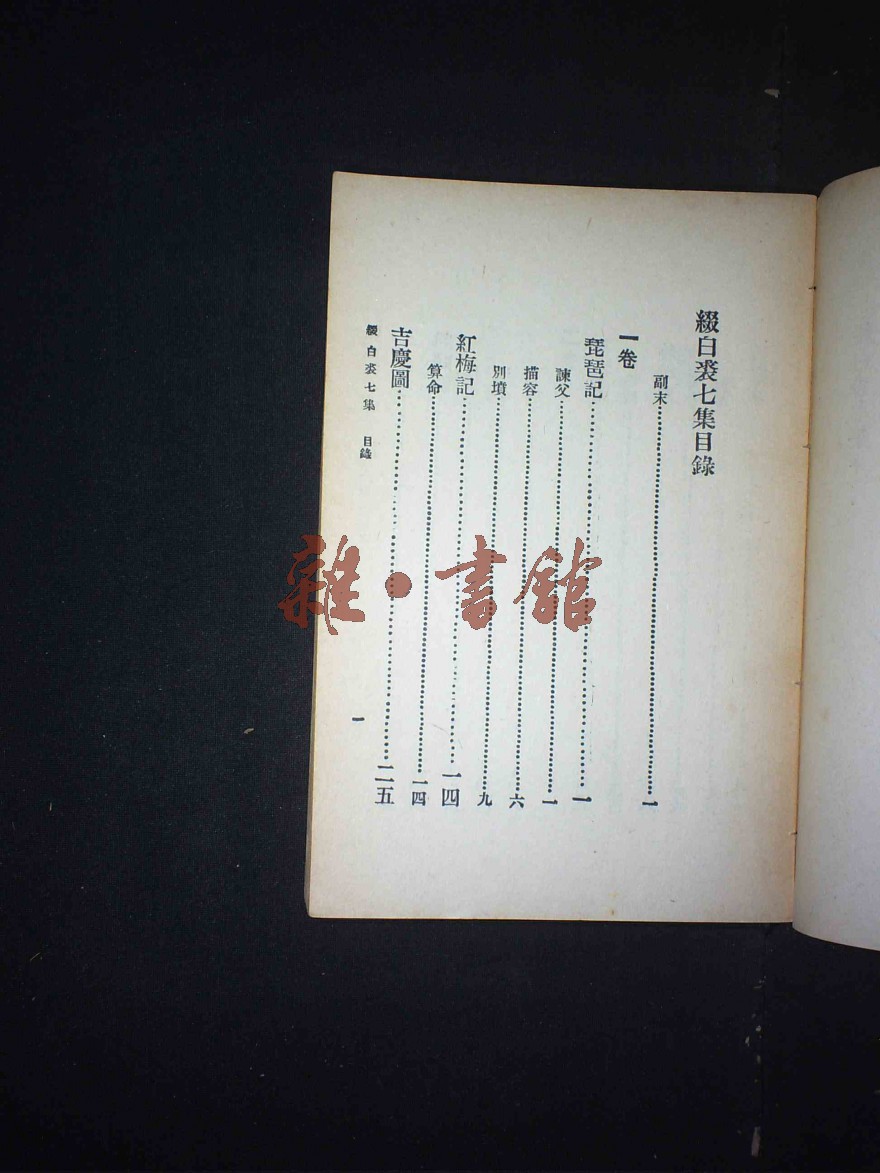 綴白裘七集目錄
副末⋯⋯一
一卷
琵琶記⋯⋯一
諫父⋯⋯一
描容⋯⋯六
別墳⋯⋯九
紅梅記⋯⋯一四
算命⋯⋯一四
吉慶圖⋯⋯二五
綴白裘七集 目錄
一
雜·書館